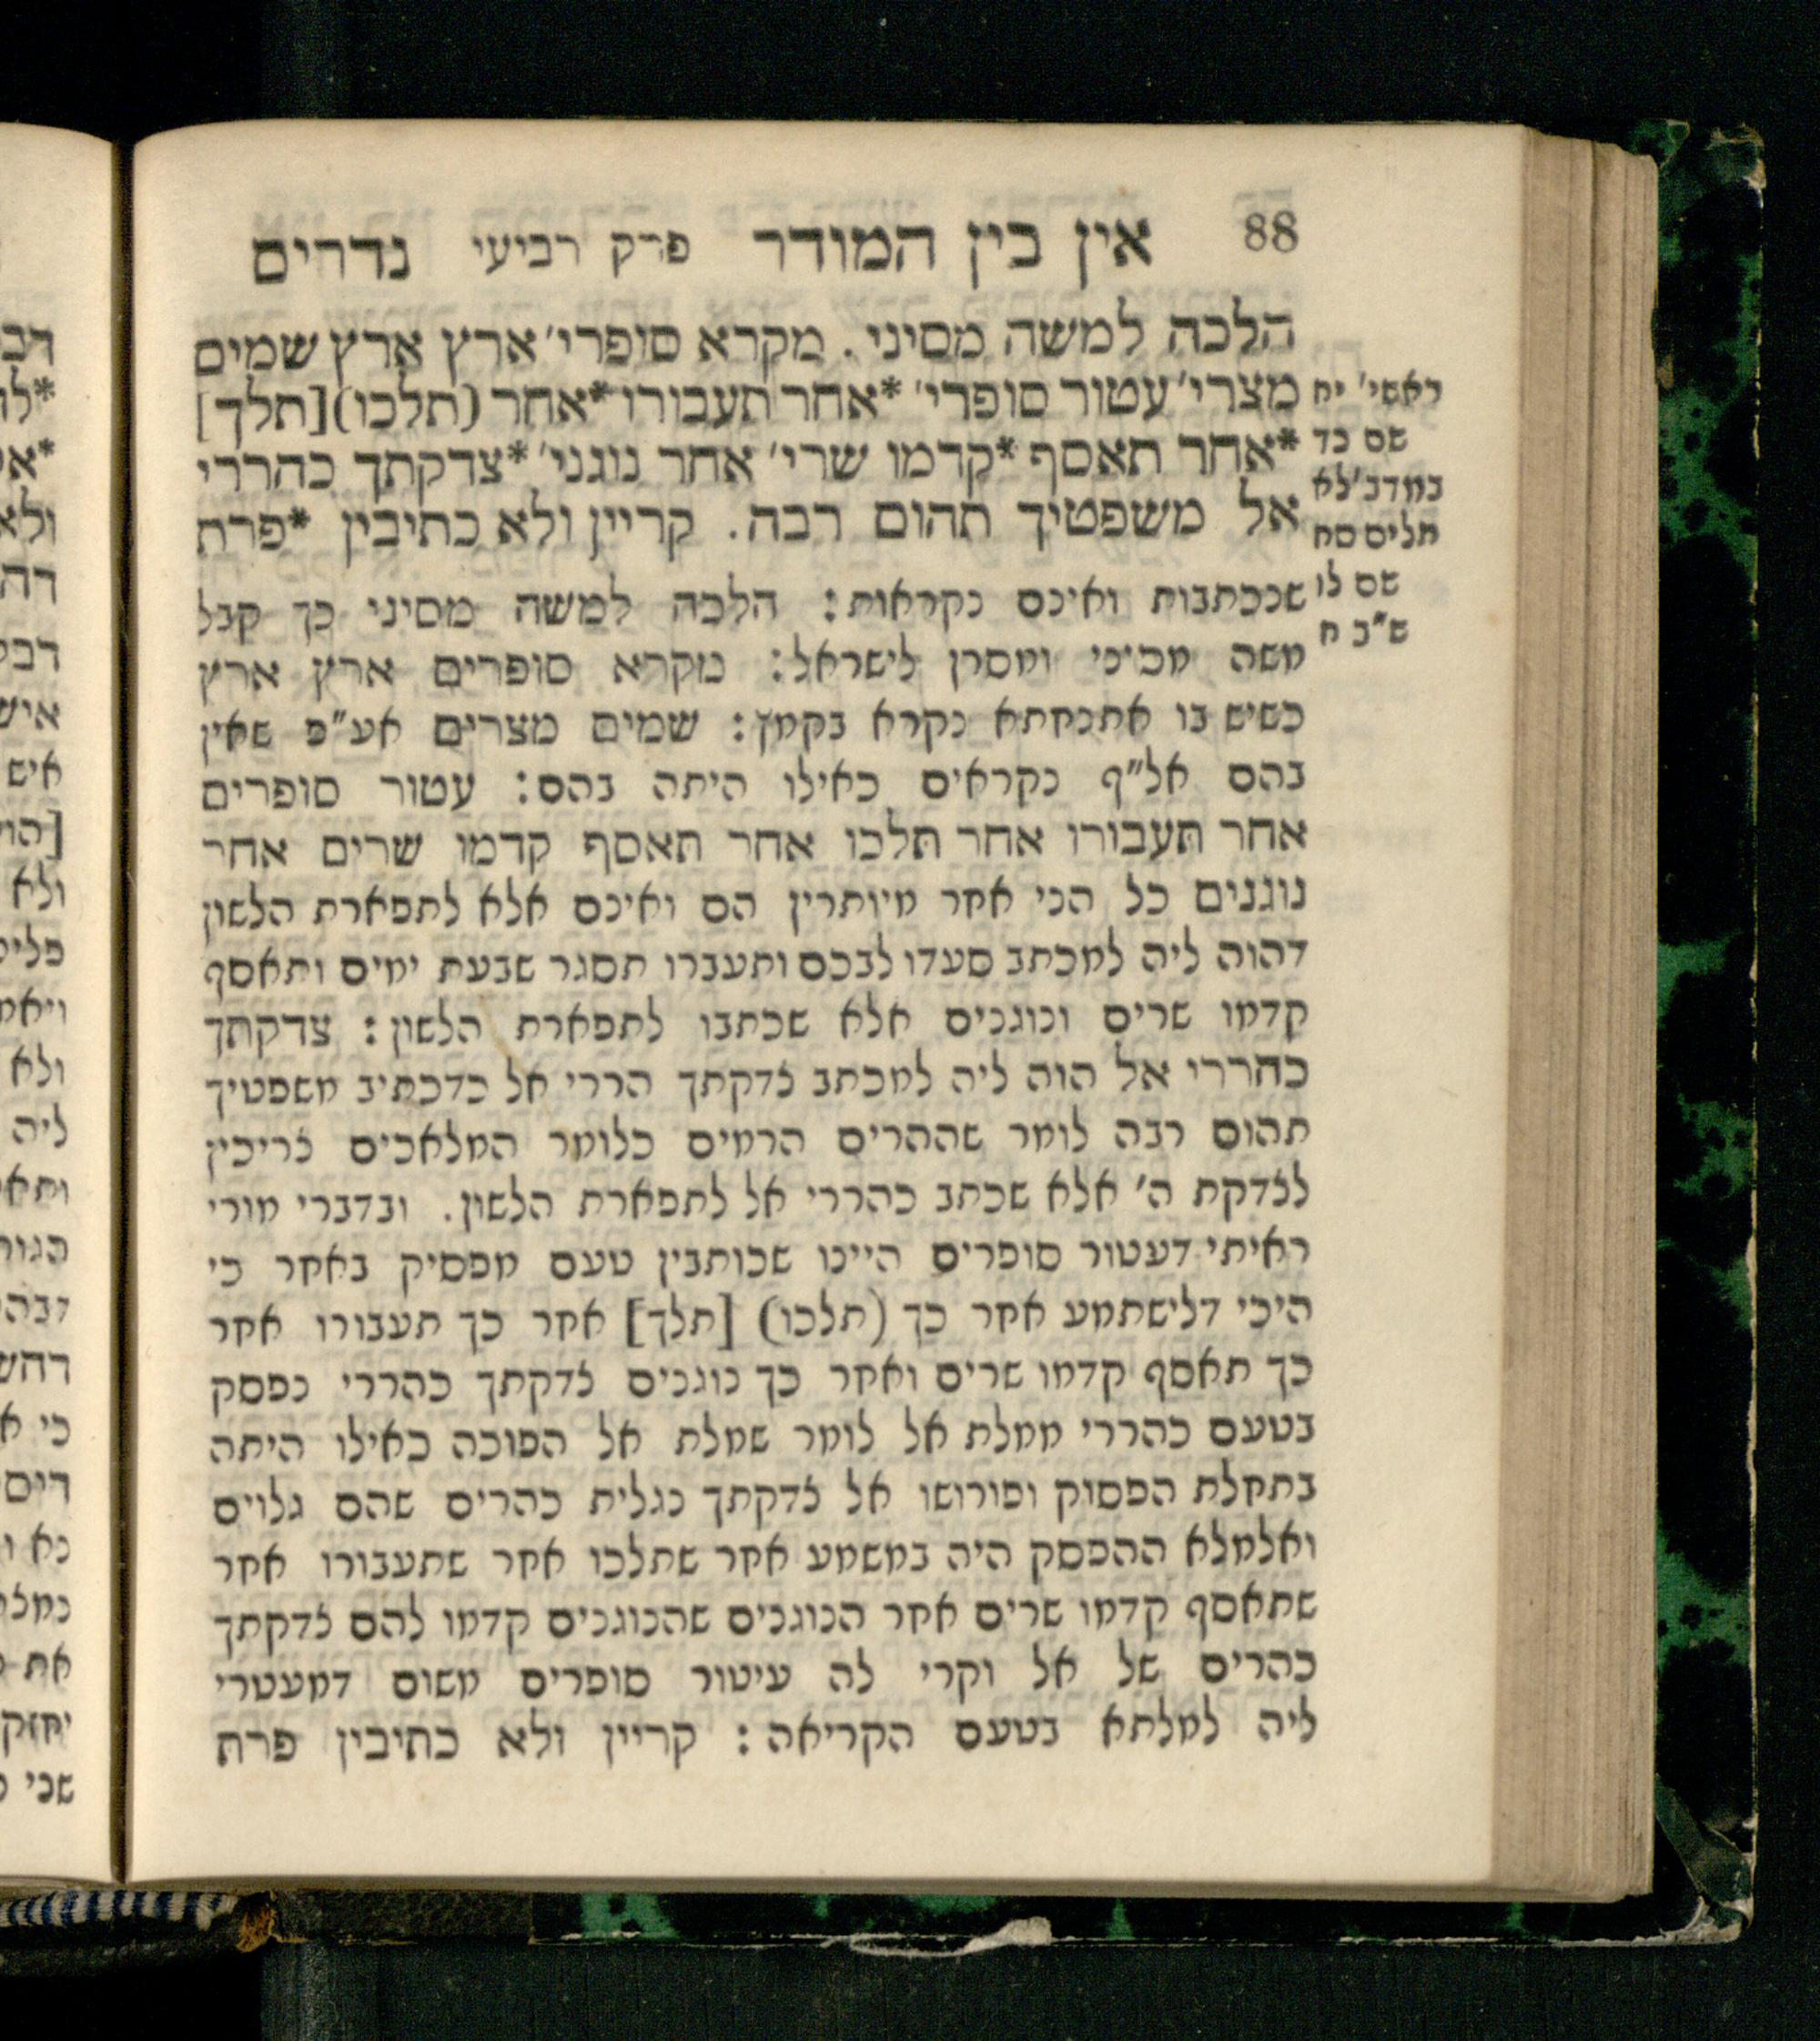 88 אין בין המודר פרק רביעי נדרים
הלכה למשה מסיני. מקרא סופרי׳ ארץ ארץ שמים
מצרי׳ עטור סופרי׳ *אחר תעבורו *אחר (תלכו) [תלך]
*אחר תאסף *קדמו שרי׳ אחר נוגני׳ *צדקתך כהררי
אל משפטיך תהום רבה. קריין ולא כתיבין *פרת
ראשי׳ יח
שם כד
במדב׳ לא
תלים סח
שם לו
ש״ב ח
שנכתבות ואינם נקראות: הלכה למשה מסיני כך קבל
משה מסיני ומסרן לישראל: מקרא סופרים ארץ ארץ
כשיש בו אתנחתא נקרא בקמץ: שמים מצרים אע״פ שאין
בהם אל״ף נקראים כאילו היתה בהם: עטור סופרים
אחר תעבורו אחר תלכו אחר תאסף קדמו שרים אחר
נוגנים כל הני אחר מיותרין הם ואינם אלא לתפארת הלשון
דהוה ליה למכתב סעדו לבכם ותעברו תסגר שבעת ימים ותאסף
קדמו שרים ונוגנים אלא שכתבו לתפארת הלשון: צדקתך
כהררי אל הוה ליה למכתב צדקתך הררי אל כדכתיב משפטיך
תהום רבה לומר שההרים הרמים כלומר המלאכים צריכין
לצדקת ה׳ אלא שכתב כהררי אל לתפארת הלשון. ובדברי מורי
ראיתי דעטור סופרים היינו שכותבין טעם מפסיק באחר כי
היכי דלישתמע אחר כך (תלכו) [תלך] אחר כך תעבורו אחר
כך תאסף קדמו שרים ואחר כך נוגנים צדקתך כהררי נפסק
בטעם כהררי ממלת אל לומר שמלת אל הפוכה כאילו היתה
בתחלת הפסוק ופירושו אל צדקתך נגלית כהרים שהם גלוים
ואלמלא ההפסק היה במשמע אחר שתלכו אחר שתעבורו אחר
שתאסף קדמו שרים אחר הנוגנים שהנוגנים קדמו להם צדקתך
כהרים של אל וקרי לה עיטור סופרים משום דמעטרי
ליה למלתא בטעם הקריאה: קריין ולא כתיבין פרת